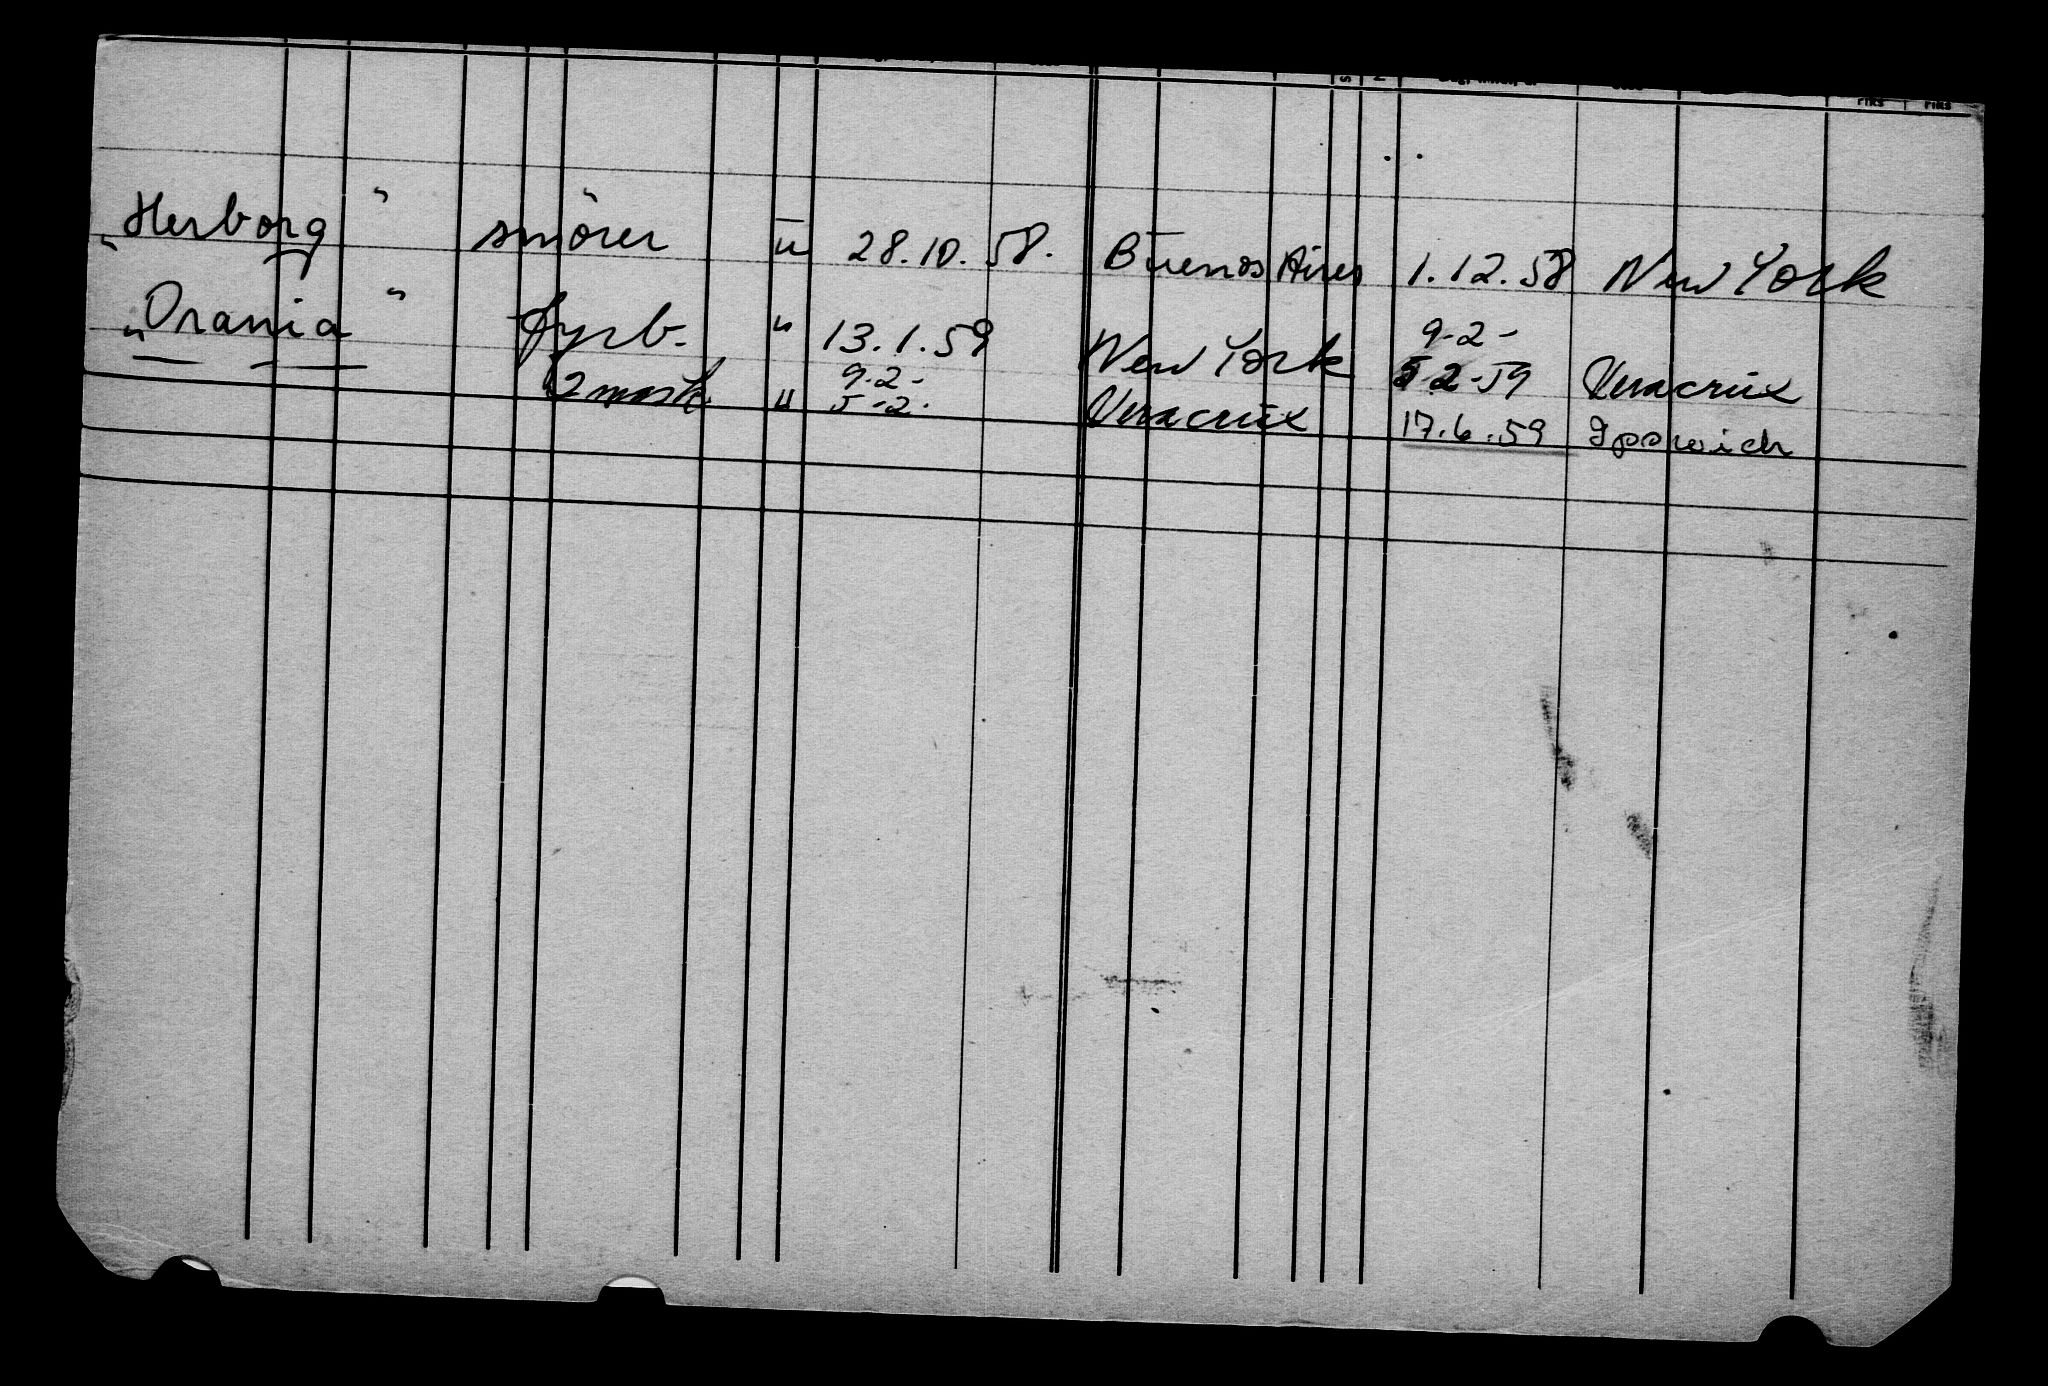 „Herborg" smörer " 28.10.58. Buenos Aires 1.12.58 New York
„Orania" fyrb. " 13.1.59 New York 9-2- 5-2-59 Veracruz
2 mask. " 9.2- 5-2- Veracruz 17.6.59 Ipswich